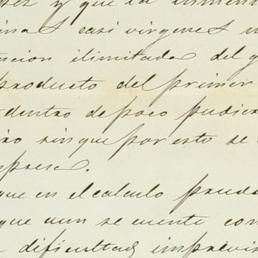 y que la inmen
casi vírgenes
ilimitada del g
producto del primer
dentro de poco pudier
sin que por esto se
empresa.
que en el calculo prude
que aun se cuente con
dificultad imprevis